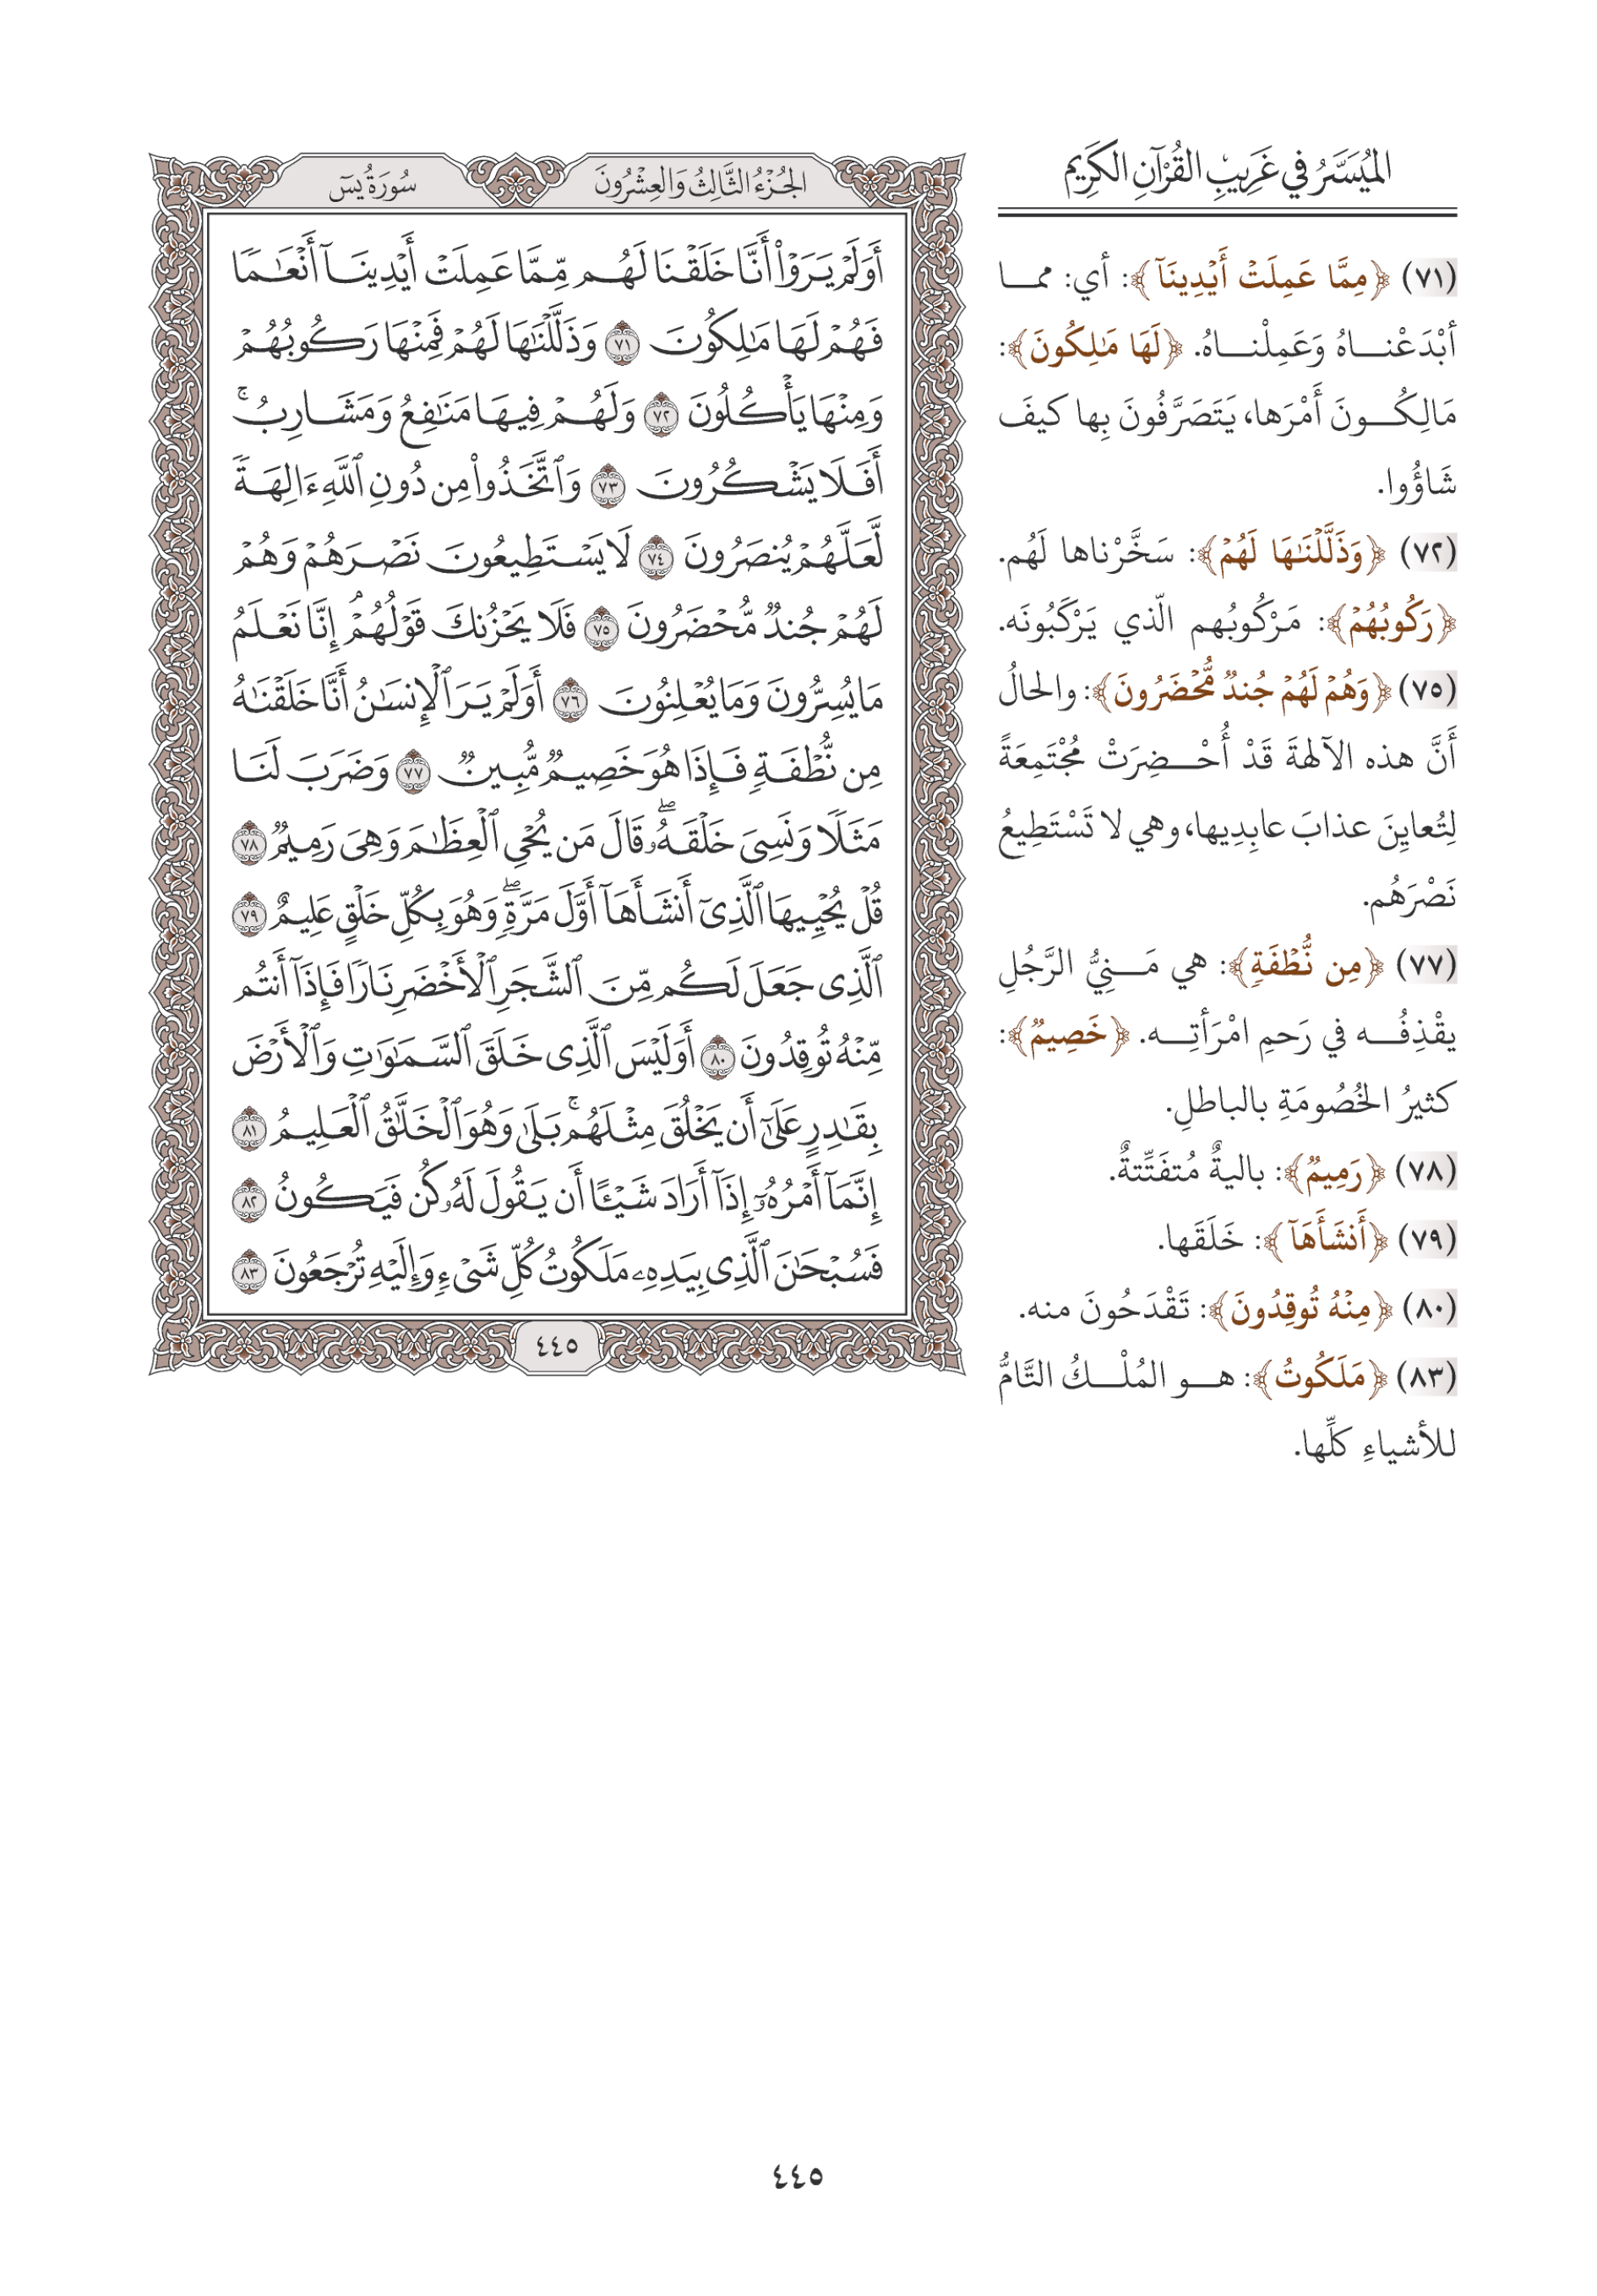 الميُسَّرُ في غَرِيبِ القُرْآنِ الكَرِيم
(٧١) ﴿مِمَّا عَمِلَتۡ أَيۡدِينَآ﴾: أي: ممـا
أبْدَعْنـاهُ وَعَمِلْنـاهُ. ﴿لَهَا مَٰلِكُونَ﴾:
مَالِكُـونَ أَمْرَها، يَتَصَرَّفُونَ بِها كيفَ
شَاؤُوا.
(٧٢) ﴿وَذَلَّلۡنَٰهَا لَهُمۡ﴾: سَخَّرْناها لَهُم.
﴿رَكُوبُهُمۡ﴾: مَرْكُوبُهم الّذي يَرْكَبُونَه.
(٧٥) ﴿وَهُمۡ لَهُمۡ جُندٞ مُّحۡضَرُونَ﴾: والحالُ
أَنَّ هذه الآلهةَ قَدْ أُحْـضِرَتْ مُجْتَمِعَةً
لِتُعايِنَ عذابَ عابِدِيها، وهي لا تَسْتَطِيعُ
نَصْرَهُم.
(٧٧) ﴿مِن نُّطۡفَةٖ﴾: هي مَـنِيُّ الرَّجُلِ
يقْذِفُـه في رَحمِ امْرَأتِـه. ﴿خَصِيمٞ﴾:
كثيرُ الخُصُومَةِ بالباطلِ.
(٧٨) ﴿رَمِيمٞ﴾: باليةٌ مُتفَتِّتةٌ.
(٧٩) ﴿أَنشَأَهَآ﴾: خَلَقَها.
(٨٠) ﴿مِنۡهُ تُوقِدُونَ﴾: تَقْدَحُونَ منه.
(٨٣) ﴿مَلَكُوتُ﴾: هـو المُلْـكُ التَّامُّ
للأشياءِ كلِّها.
الجُزْءُ الثَّالِثُ وَالعِشْرُونَ
سُورَةُ يسٓ
أَوَلَمۡ يَرَوۡاْ أَنَّا خَلَقۡنَا لَهُم مِّمَّا عَمِلَتۡ أَيۡدِينَآ أَنۡعَٰمٗا
فَهُمۡ لَهَا مَٰلِكُونَ ٧١ وَذَلَّلۡنَٰهَا لَهُمۡ فَمِنۡهَا رَكُوبُهُمۡ
وَمِنۡهَا يَأۡكُلُونَ ٧٢ وَلَهُمۡ فِيهَا مَنَٰفِعُ وَمَشَارِبُۚ
أَفَلَا يَشۡكُرُونَ ٧٣ وَٱتَّخَذُواْ مِن دُونِ ٱللَّهِ ءَالِهَةٗ
لَّعَلَّهُمۡ يُنصَرُونَ ٧٤ لَا يَسۡتَطِيعُونَ نَصۡرَهُمۡ وَهُمۡ
لَهُمۡ جُندٞ مُّحۡضَرُونَ ٧٥ فَلَا يَحۡزُنكَ قَوۡلُهُمۡۘ إِنَّا نَعۡلَمُ
مَا يُسِرُّونَ وَمَا يُعۡلِنُونَ ٧٦ أَوَلَمۡ يَرَ ٱلۡإِنسَٰنُ أَنَّا خَلَقۡنَٰهُ
مِن نُّطۡفَةٖ فَإِذَا هُوَ خَصِيمٞ مُّبِينٞ ٧٧ وَضَرَبَ لَنَا
مَثَلٗا وَنَسِيَ خَلۡقَهُۥۖ قَالَ مَن يُحۡيِ ٱلۡعِظَٰمَ وَهِيَ رَمِيمٞ ٧٨
قُلۡ يُحۡيِيهَا ٱلَّذِيٓ أَنشَأَهَآ أَوَّلَ مَرَّةٖۖ وَهُوَ بِكُلِّ خَلۡقٍ عَلِيمٌ ٧٩
ٱلَّذِي جَعَلَ لَكُم مِّنَ ٱلشَّجَرِ ٱلۡأَخۡضَرِ نَارٗا فَإِذَآ أَنتُم
مِّنۡهُ تُوقِدُونَ ٨٠ أَوَلَيۡسَ ٱلَّذِي خَلَقَ ٱلسَّمَٰوَٰتِ وَٱلۡأَرۡضَ
بِقَٰدِرٍ عَلَىٰٓ أَن يَخۡلُقَ مِثۡلَهُمۚ بَلَىٰ وَهُوَ ٱلۡخَلَّٰقُ ٱلۡعَلِيمُ ٨١
إِنَّمَآ أَمۡرُهُۥٓ إِذَآ أَرَادَ شَيۡـًٔا أَن يَقُولَ لَهُۥ كُن فَيَكُونُ ٨٢
فَسُبۡحَٰنَ ٱلَّذِي بِيَدِهِۦ مَلَكُوتُ كُلِّ شَيۡءٖ وَإِلَيۡهِ تُرۡجَعُونَ ٨٣
٤٤٥
٤٤٥